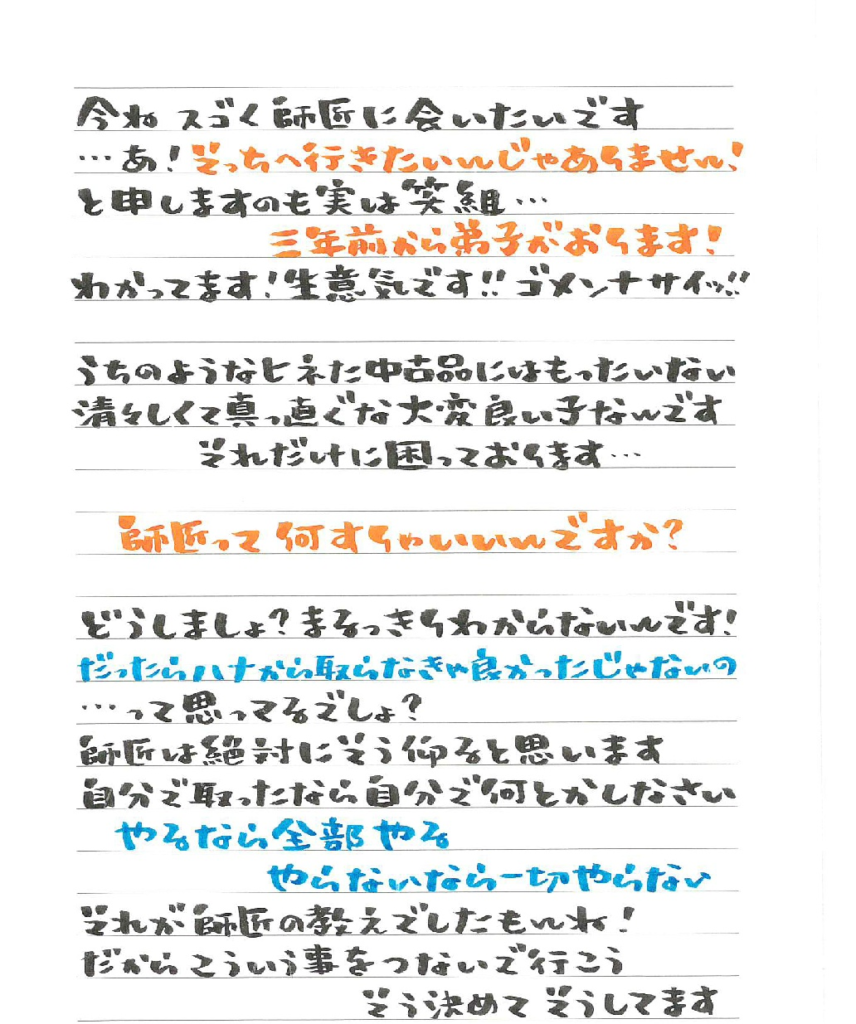 今ね スゴく師匠に会いたいです
…あ！そっちへ行きたいんじゃありません！
と申しますのも実は笑組…
三年前から弟子がおります！
わかってます！生意気です!! ゴメンナサイッ!!
うちのようなヒネた中古品にはもったいない
清々しくて真っ直ぐな大変良い子なんです
それだけに困っております…
師匠って 何すりゃいいんですか？
どうしましょ？まるっきりわからないんです！
だったらハナから取らなきゃ良かったじゃないの
…って思ってるでしょ？
師匠は絶対にそう仰ると思います
自分で取ったなら自分で何とかしなさい
やるなら全部やる
やらないなら一切やらない
それが師匠の教えでしたもんね！
だからこういう事をつないで行こう
そう決めて そうしてます